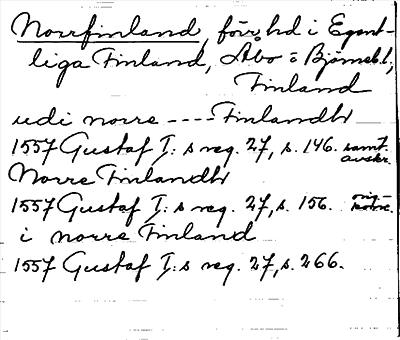 Norrfinland, förr hd i Egent-
liga Finland, Åbo o Björneb.l.,
Finland
udi norre ---- Finlandh
1557 Gustaf I:s reg. 27, s. 146. samt. avskr.
Norre Finlandh
1557 Gustaf I:s reg. 27, s. 156. orig.
i norre Finland
1557 Gustaf I:s reg. 27, s. 266.